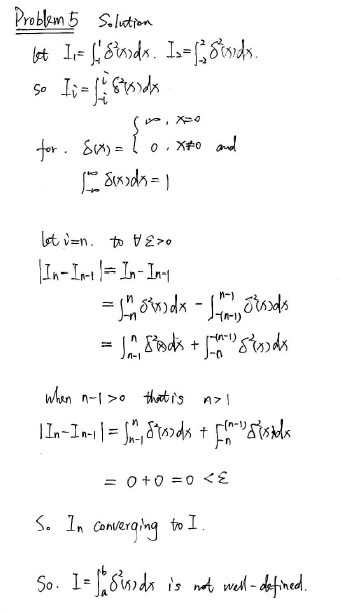 Problem 5 Solution
let I₁=∫₋₁¹δ²(x)dx. I₂=∫₋₂²δ²(x)dx.
so Iᵢ=∫₋ᵢⁱδ²(x)dx
for. δ(x) = { ∞, x=0
0, x≠0 and
∫₋∞^∞ δ(x)dx = 1
let i=n. to ∀ε>0
|Iₙ-Iₙ₋₁| = Iₙ-Iₙ₋₁
= ∫₋ₙⁿ δ²(x)dx - ∫₋₍ₙ₋₁₎ⁿ⁻¹ δ²(x)dx
= ∫ₙ₋₁ⁿ δ²(x)dx + ∫₋ₙ^-(n-1) δ²(x)dx
when n-1>0 that is n>1
|Iₙ-Iₙ₋₁| = ∫ₙ₋₁ⁿ δ²(x)dx + ∫₋ₙ^-(n-1) δ²(x)dx
= 0+0 = 0 <ε
So Iₙ converging to I.
So. I=∫ₐᵇδ²(x)dx is not well-defined.